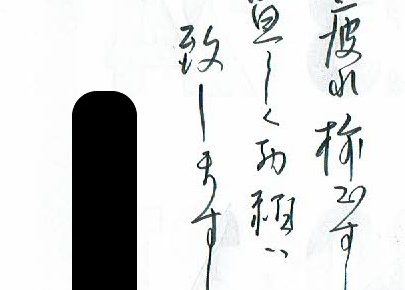 疲れ様です
宜しくお願い
致します